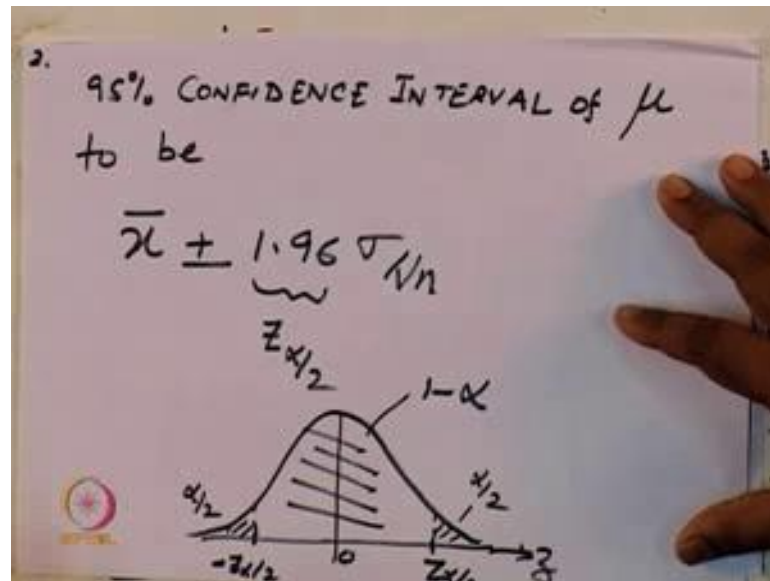 2.
95% CONFIDENCE INTERVAL of μ
to be
x̄ ± 1.96 σ/√n
Z α/2
1-α
α/2
α/2
-Zα/2
0
Zα/2
z